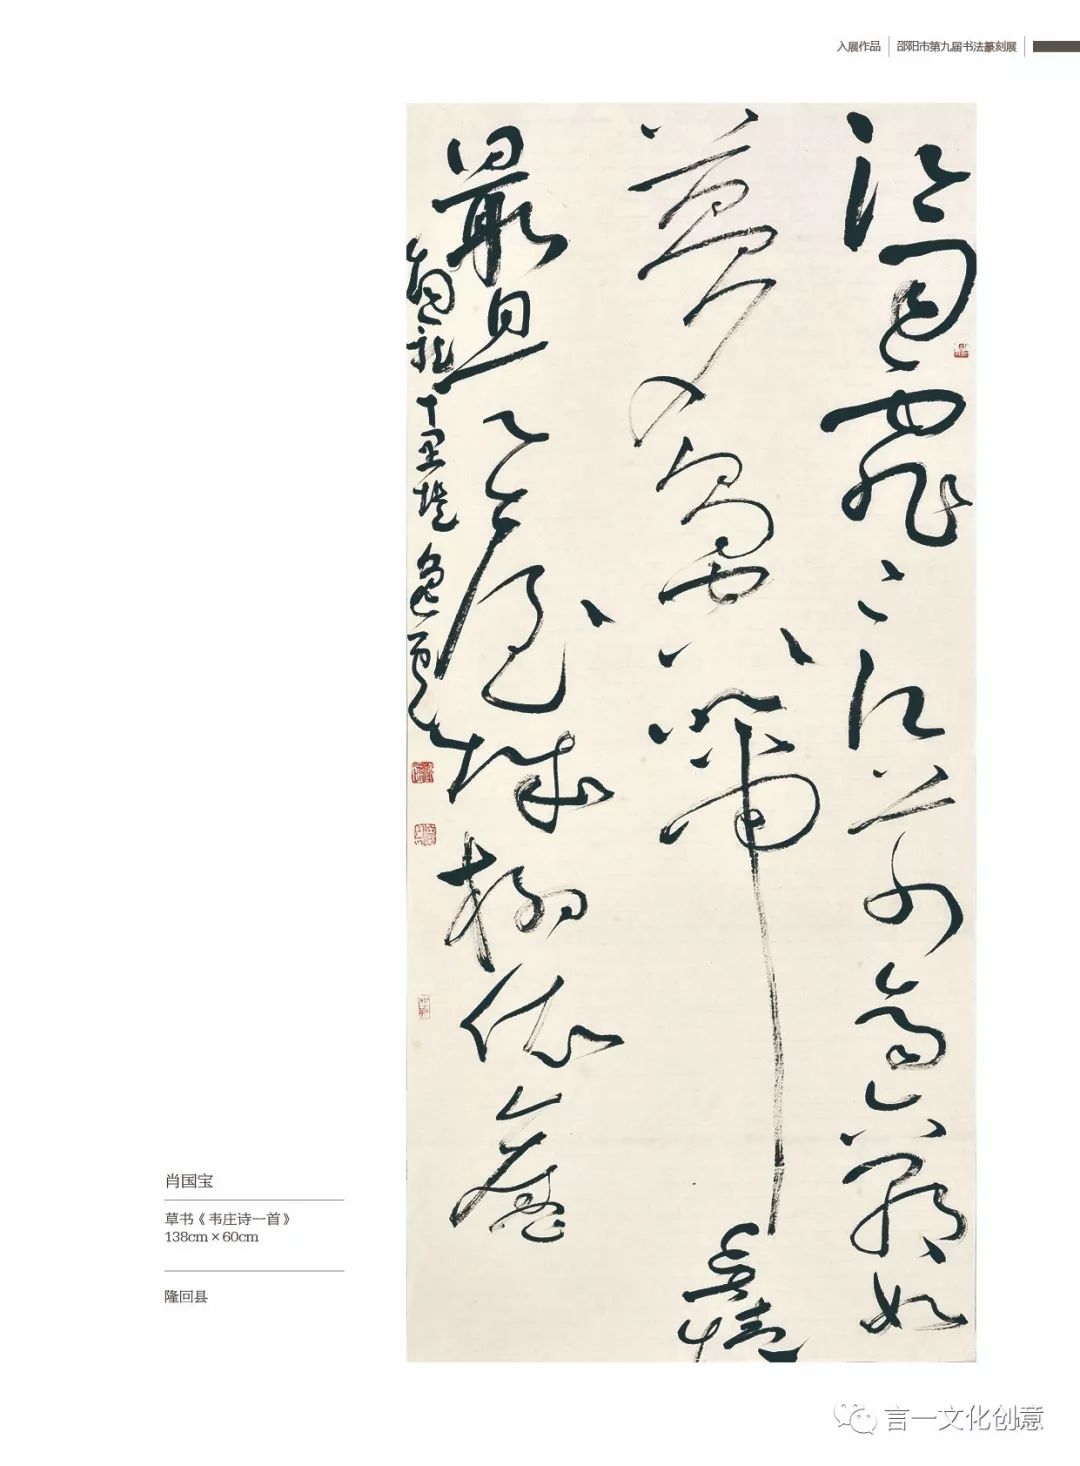 入展作品 邵阳市第九届书法篆刻展
江雨霏〻江草齊六朝如
夢鳥空啼無情
最是臺城柳依舊
烟籠十里堤
肖国宝
草书《韦庄诗一首》
138cm×60cm
隆回县
言一文化创意